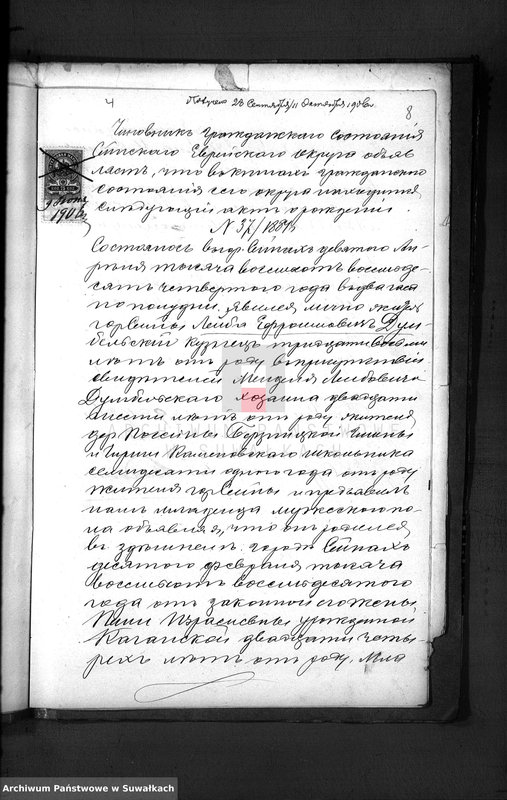 4
8
Чиновникъ Гражданскаго состоянія
Сейнскаго Еврейскаго округа объяв
ляетъ, что въ книгахъ гражданскаго
состоянія сего округа находится
слѣдующій актъ о рожденіи.
1906
N 37/1884
Состоялось въ гор. Сейнахъ девятаго Ап
рѣля тысяча восемьсотъ восемьде-
сятъ четвертаго года въ два часа
по полудни. Явился лично житель
гор Сейны Лейба Ефроимовичъ Дум
бельскій купецъ тридцати восьми
лѣтъ отъ роду въ присутствіи
свидѣтелей Менделя Лейбовича
Думбельскаго хозаина двадцати
шести лѣтъ отъ роду жителя
дер Поссейны Бержницкой Гмины
и Гирши Каменовскаго школьника
семидесяти одного года отъ роду
жителя гор Сейны и предъявилъ
намъ младенца мужескаго по-
ла объявляя, что онъ родился
въ здѣшнемъ городѣ Сейнахъ
десятаго февраля тысяча
восемьсотъ восемьдесятаго
года отъ законной его жены
Израилевны урожденной
Каганской двадцати четы-
рехъ лѣтъ отъ роду. Мла
ARCHIWUM PAŃSTWOWE
Archiwum Państwowe w Suwałkach